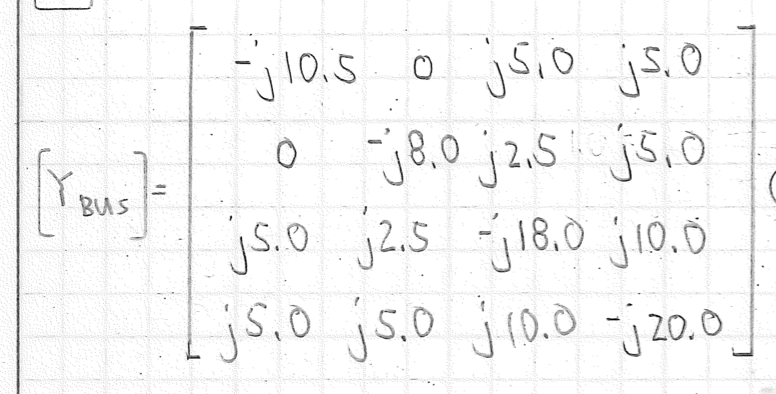 -j10.5 0 j5.0 j5.0
0 -j8.0 j2.5 j5.0
[Y_BUS] =
j5.0 j2.5 -j18.0 j10.0
j5.0 j5.0 j10.0 -j20.0